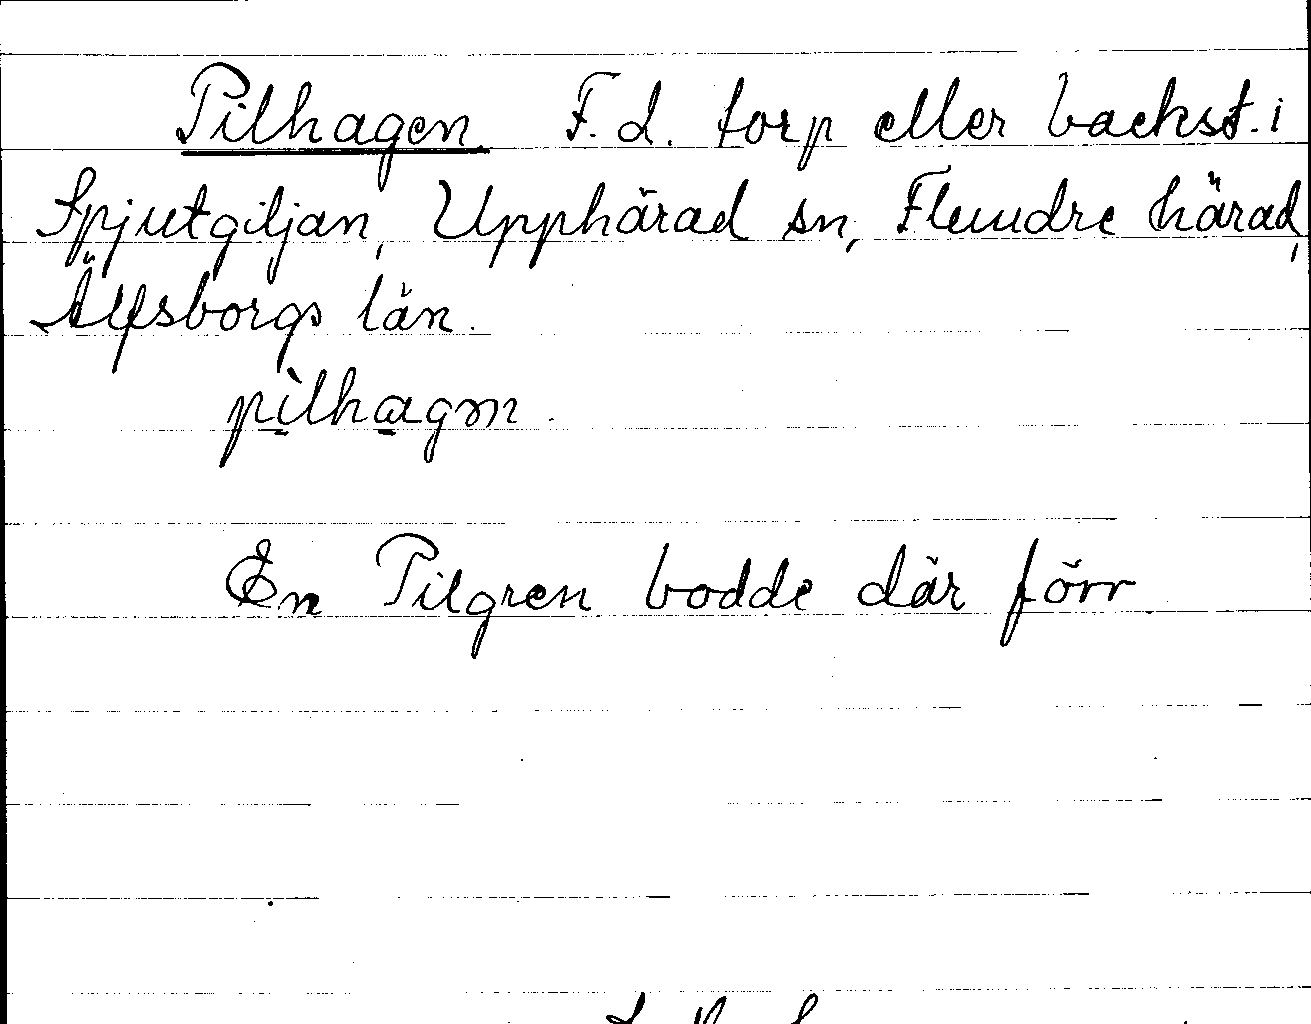 Pilhagen. F.d. torp eller backst. i
Spjutgiljan, Upphärad sn, Flundre härad,
Älfsborgs län.
pìlhagm.
En Pilgren bodde där förr.